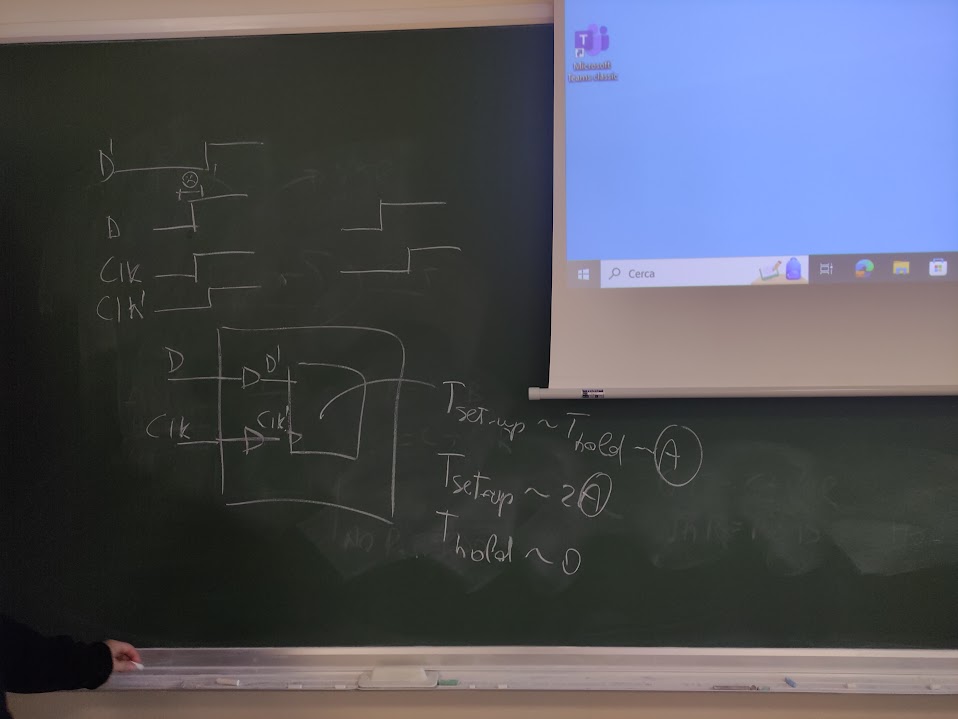 Microsoft
Teams classic
Cerca
D'
D
Clk
Clk'
D
D'
Clk
Clk'
Tset-up ~ Thold ~ A
Tset-up ~ 2A
Thold ~ 0